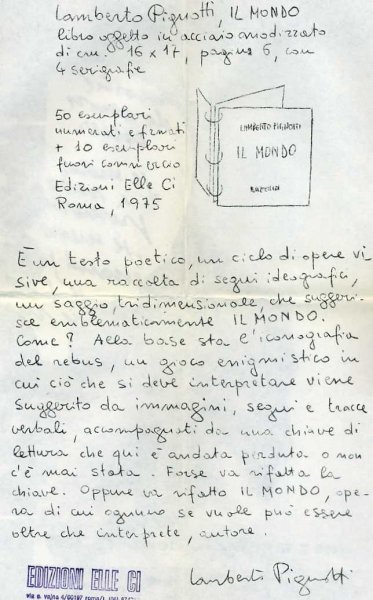 Lamberto Pignotti, IL MONDO
libro oggetto in acciaio anodizzato
di cm. 16 x 17, pagine 6, con
4 serigrafie
50 esemplari
numerati e firmati
+ 10 esemplari
fuori commercio
Edizioni Elle Ci
Roma, 1975
LAMBERTO PIGNOTTI
IL MONDO
È un testo poetico, un ciclo di opere vi
sive, una raccolta di segni ideografici,
un saggio tridimensionale, che suggeri-
sce emblematicamente IL MONDO.
Come? Alla base sta l'iconografia
del rebus, un gioco enigmistico in
cui ciò che si deve interpretare viene
suggerito da immagini, segni e tracce
verbali, accompagnati da una chiave di
lettura che qui è andata perduta o non
c'è mai stata. Forse va rifatta la
chiave. Oppure va rifatto IL MONDO, ope-
ra di cui ognuno se vuole può essere
oltre che interprete, autore.
Lamberto Pignotti
EDIZIONI ELLE CI